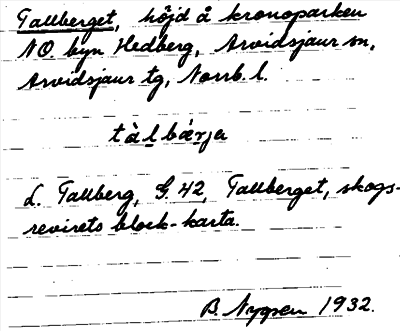 Tallberget, höjd å kronoparken
NO. byn Hedberg, Arvidsjaur sn,
Arvidsjaur tg, Norrb. l.
tàlbǽrja
L. Tallberg, G. 42, Tallberget, skogs-
revirets block-karta.
B. Nygren 1932.